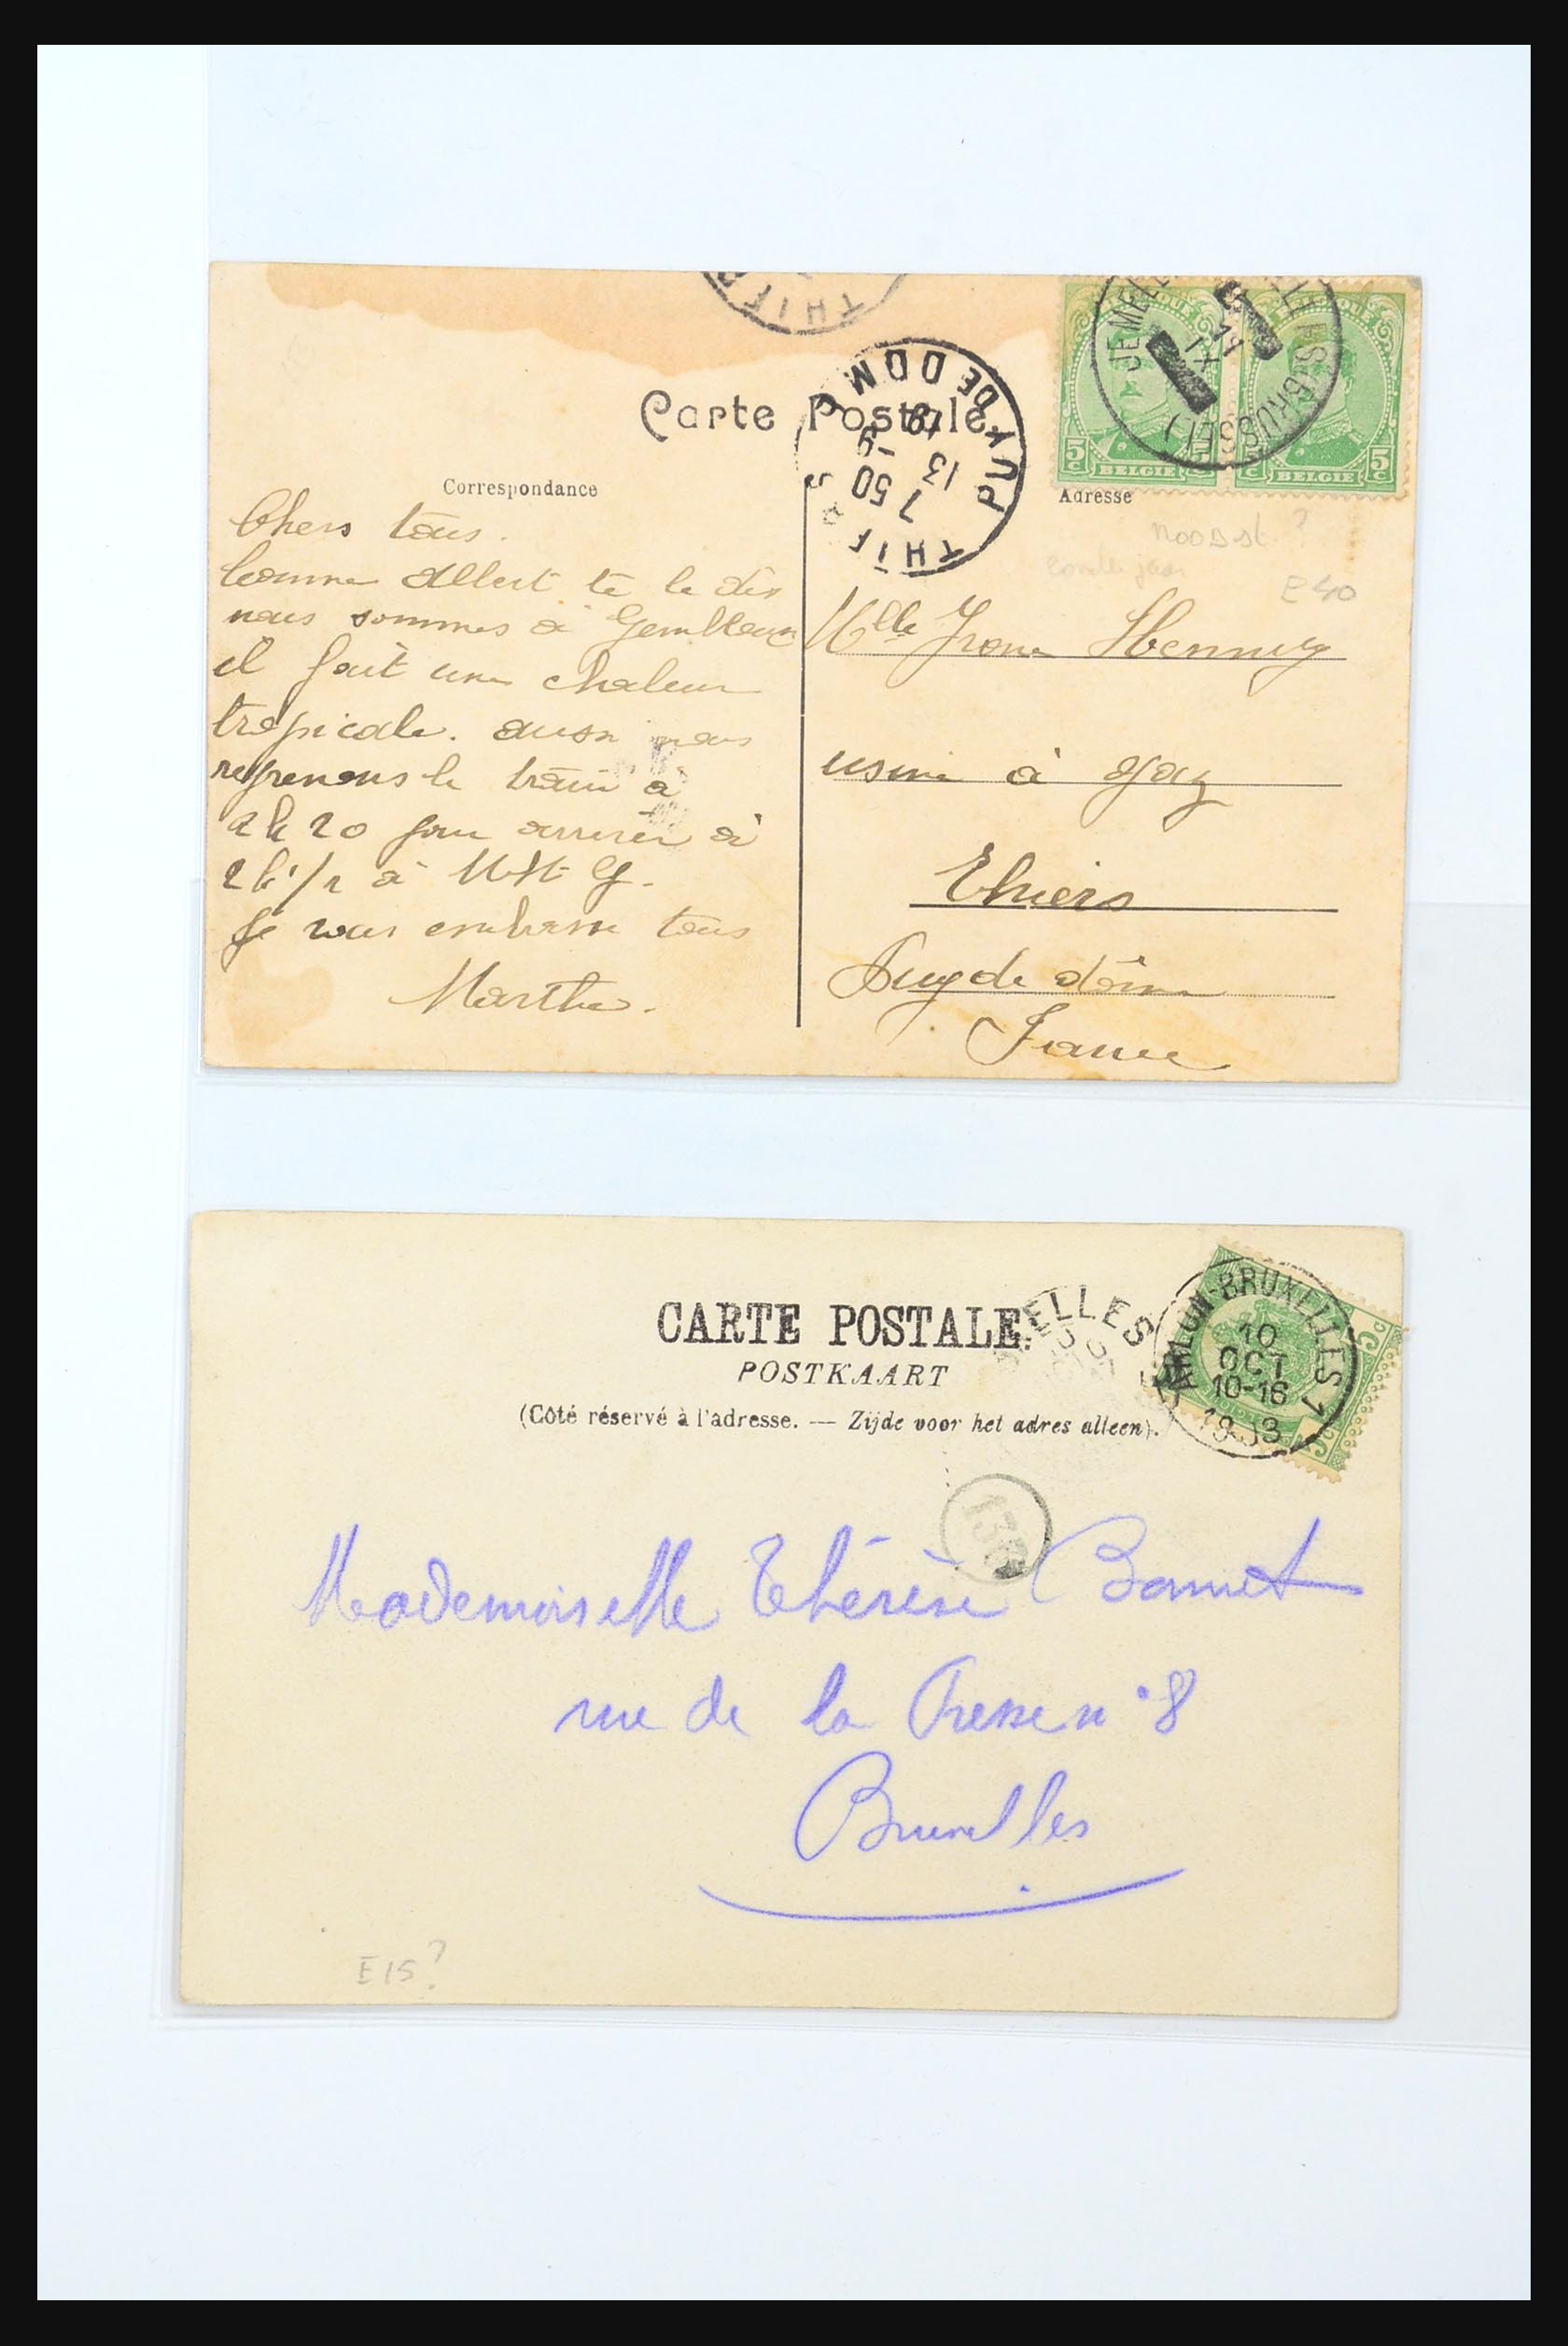 THIERS
Carte Postale
THIERS
PUY DE DOME
7 50
13 -9
19
JEMELLE
BRUSSEL
IX
BELGIQUE
5c BELGIE 5c
BELGIE 5c
Correspondance
Adresse
noodst. ?
E 40
Chers tous.
Comme Albert te le dis
nous sommes à Gembloux
il fait une chaleur
tropicale. aussi nous
reprenons le train à
2 h 20 pour arriver à
2 h 1/2 à M-St G.
Je vous embrasse tous
Marthe.
Mlle Hennuy
usine à gaz
Thiers
Puy de dôme
France
CARTE POSTALE.
POSTKAART
(Côté réservé à l'adresse. — Zijde voor het adres alleen).
ELLES
ARLON-BRUXELLES 1
10
OCT
10-16
1903
5c
Mademoiselle Thérèse Bonnet
rue de la Presse n° 8
Bruxelles
E15?